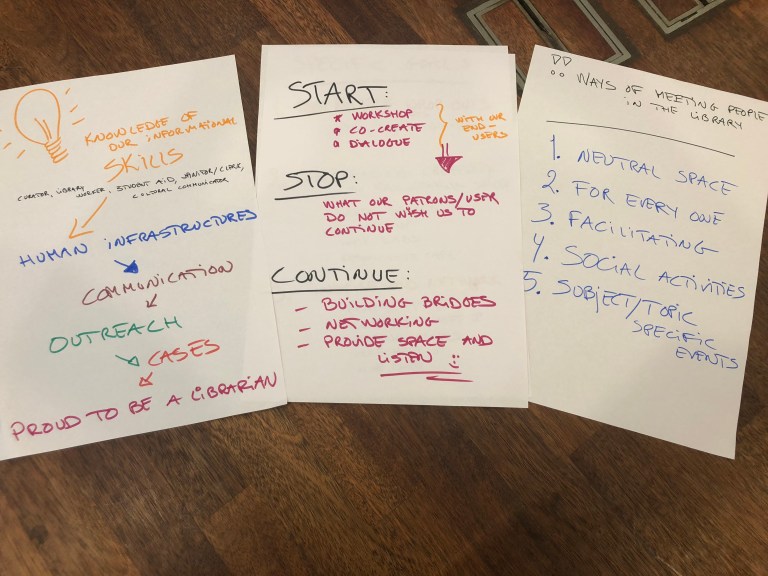 KNOWLEDGE OF
OUR INFORMATIONAL
SKILLS
CURATOR, LIBRARY WORKER, STUDENT AID, JANITOR/CLERK,
CULTURAL COMMUNICATOR
HUMAN INFRASTRUCTURES
COMMUNICATION
OUTREACH
CASES
PROUD TO BE A LIBRARIAN
START:
WORKSHOP
CO-CREATE
DIALOGUE
WITH OUR
END-
USERS
STOP:
WHAT OUR PATRONS/USER
DO NOT WISH US TO
CONTINUE
CONTINUE:
- BUILDING BRIDGES
- NETWORKING
- PROVIDE SPACE AND
LISTEN
WAYS OF MEETING PEOPLE
IN THE LIBRARY
1. NEUTRAL SPACE
2. FOR EVERY ONE
3. FACILITATING
4. SOCIAL ACTIVITIES
5. SUBJECT/TOPIC
SPECIFIC
EVENTS